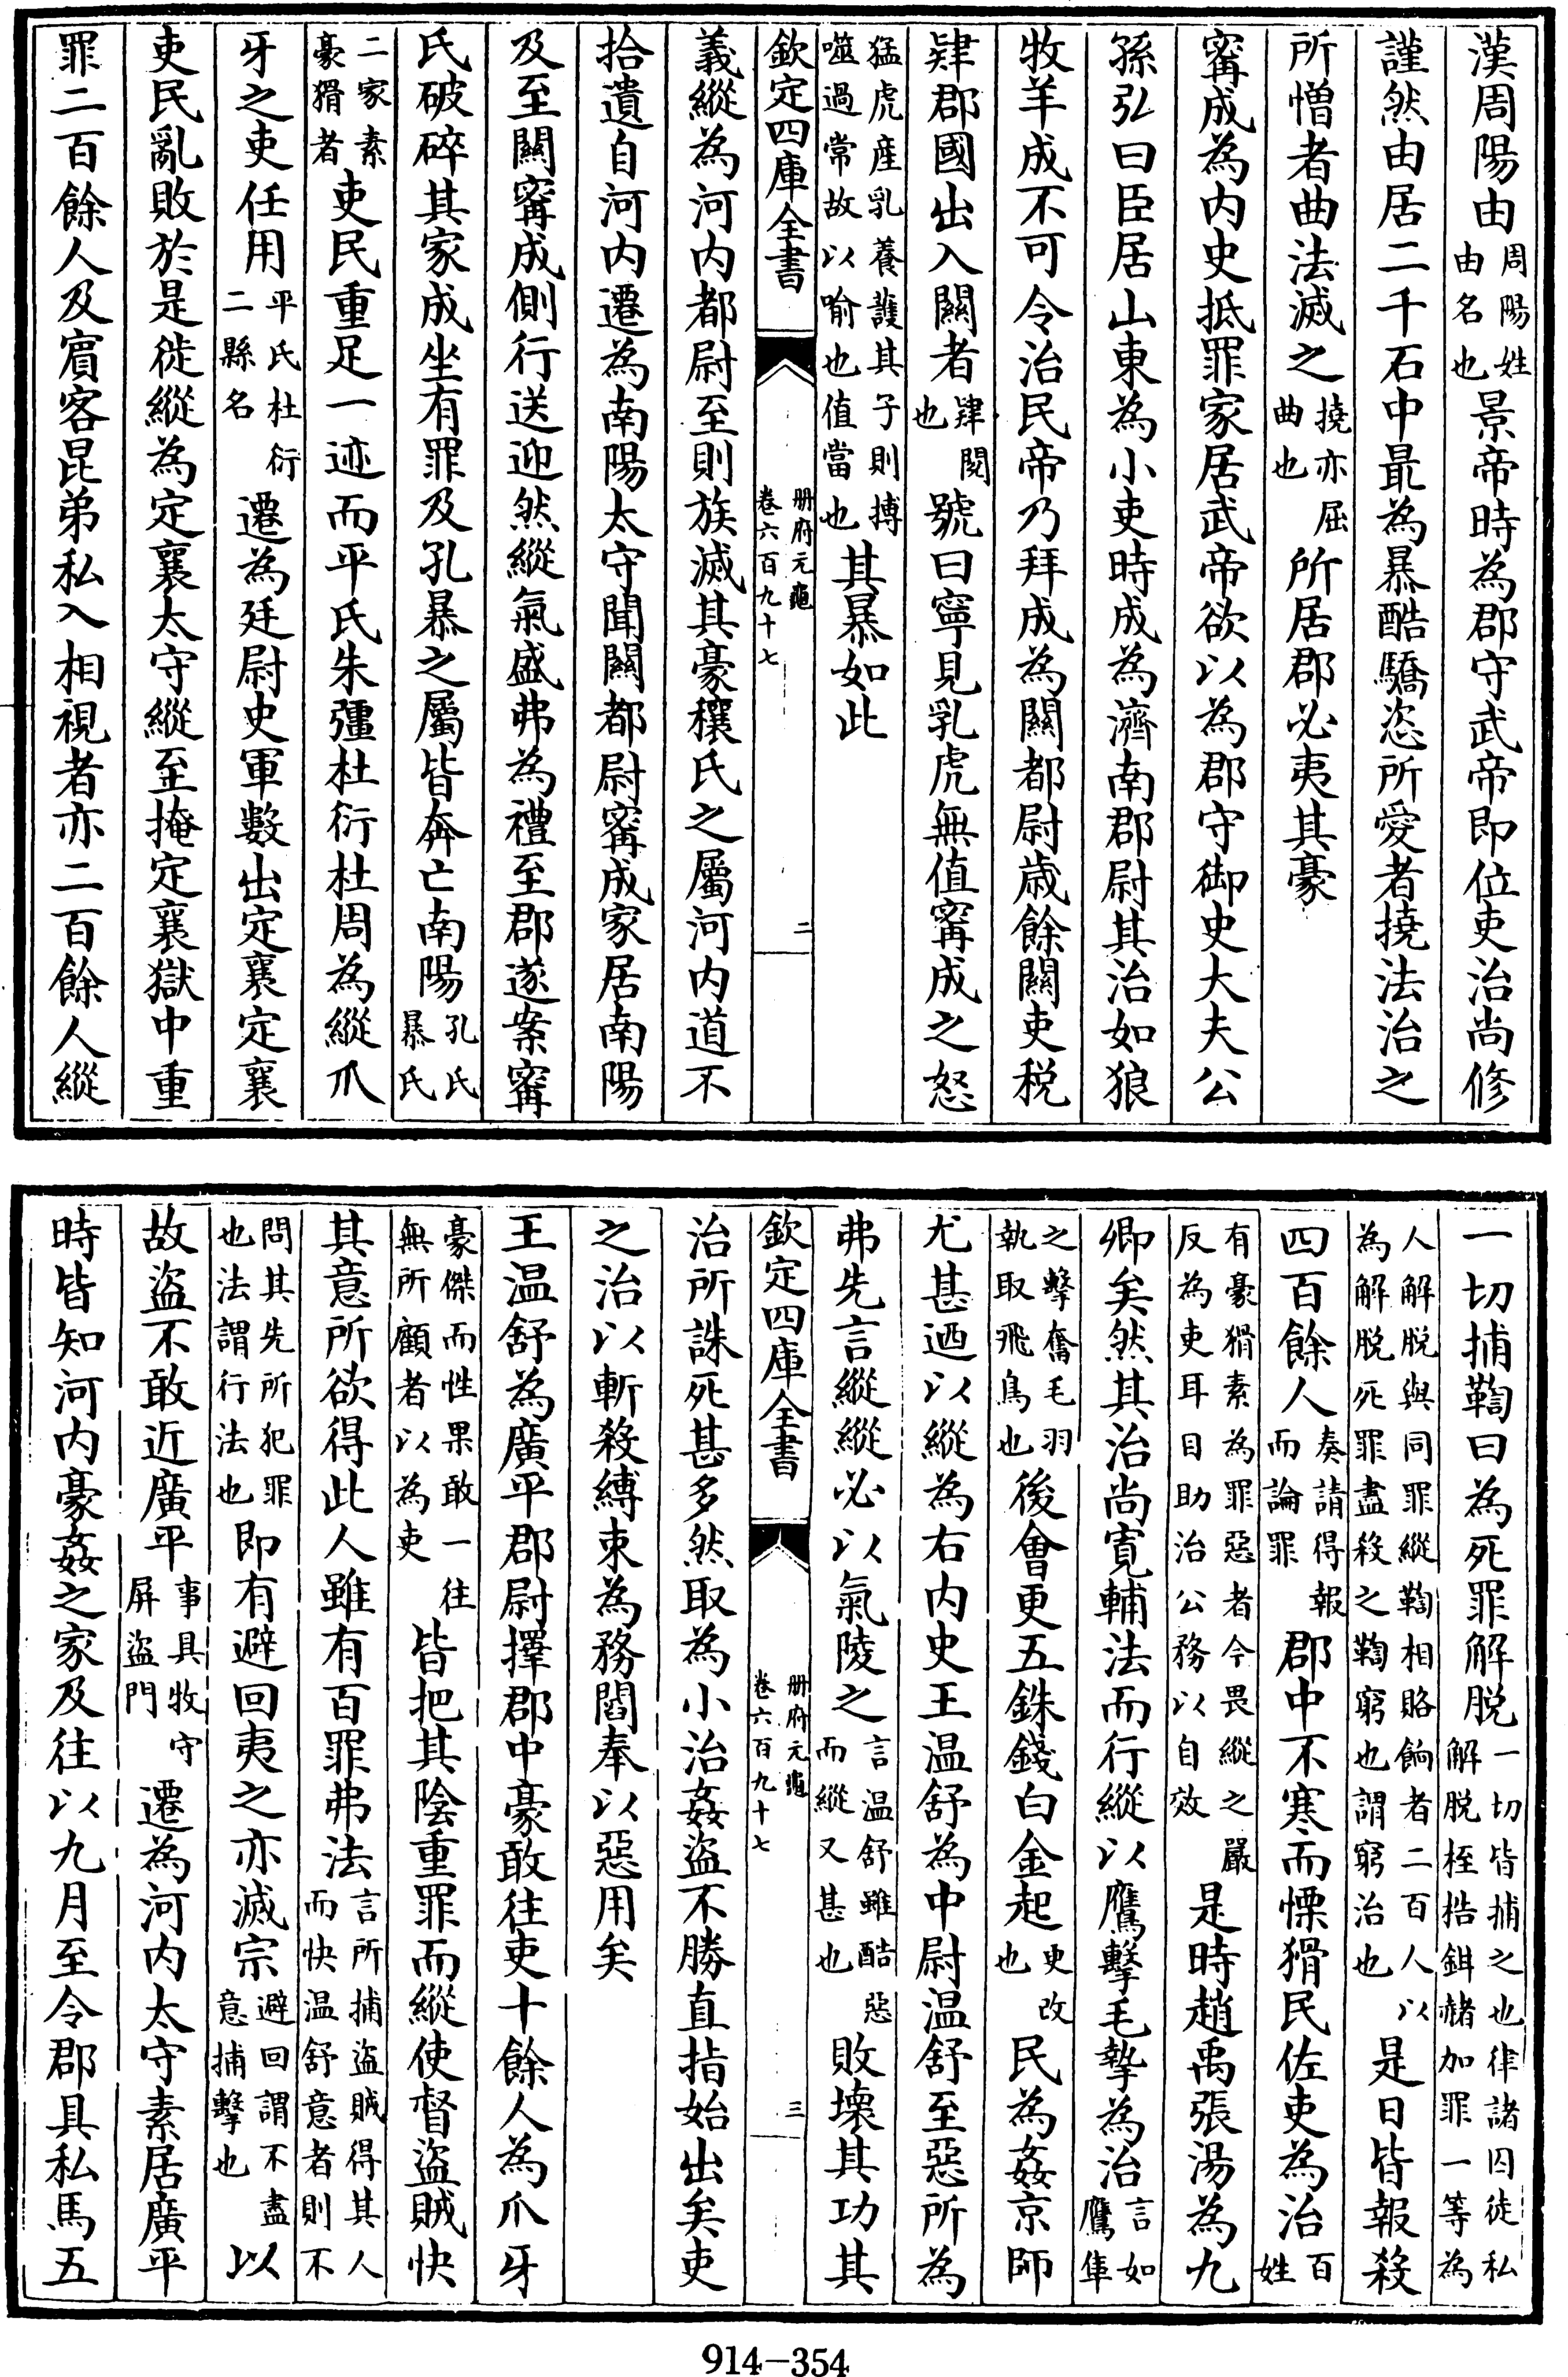 漢周陽由周陽姓由名也景帝時為郡守武帝即位吏治尚修
謹然由居二千石中最為暴酷驕恣所愛者撓法治之
所憎者曲法滅之撓亦屈曲也所居郡必夷其豪
甯成為內史抵罪家居武帝欲以為郡守御史大夫公
孫弘曰臣居山東為小吏時成為濟南郡尉其治如狼
牧羊成不可令治民帝乃拜成為關都尉歲餘關吏税
肄郡國出入關者肄閱也號曰寧見乳虎無值甯成之怒
猛虎產乳養護其子則搏噬過常故以喻也值當也其暴如此
欽定四庫全書 册府元龜卷六百九十七 二
義縱為河內都尉至則族滅其豪穰氏之屬河內道不
拾遺自河內遷為南陽太守聞關都尉甯成家居南陽
及至關甯成側行送迎然縱氣盛弗為禮至郡遂案甯
氏破碎其家成坐有罪及孔暴之屬皆奔亡南陽孔氏暴氏
二家素豪猾者吏民重足一迹而平氏朱彊杜衍杜周為縱爪
牙之吏任用平氏杜衍二縣名遷為廷尉史軍數出定襄定襄
吏民亂敗於是徙縱為定襄太守縱至掩定襄獄中重
罪二百餘人及賓客昆弟私入相視者亦二百餘人縱
一切捕鞫曰為死罪解脱一切皆捕之也律諸囚徒私解脱桎梏鉗赭加罪一等為
人解脱與同罪縱鞫相賂餉者二百人以為解脱死罪盡殺之鞫窮也謂窮治也是日皆報殺
四百餘人奏請得報而論罪郡中不寒而慄猾民佐吏為治百姓
有豪猾素為罪惡者今畏縱之嚴反為吏耳目助治公務以自效是時趙禹張湯為九
卿矣然其治尚寛輔法而行縱以鷹擊毛摯為治言如鷹隼
之擊奮毛羽執取飛鳥也後會更五銖錢白金起更改也民為姦京師
尤甚迺以縱為右內史王温舒為中尉温舒至惡所為
弗先言縱縱必以氣陵之言温舒雖酷惡而縱又甚也敗壞其功其
欽定四庫全書 册府元龜卷六百九十七 三
治所誅死甚多然取為小治姦盜不勝直指始出矣吏
之治以斬殺縛束為務閻奉以惡用矣
王温舒為廣平郡尉擇郡中豪敢往吏十餘人為爪牙
豪傑而性果敢一往無所顧者以為吏皆把其陰重罪而縱使督盜賊快
其意所欲得此人雖有百罪弗法言所捕盜賊得其人而快温舒意者則不
問其先所犯罪也法謂行法也即有避回夷之亦滅宗避回謂不盡意捕擊也以
故盜不敢近廣平事具牧守屏盜門遷為河內太守素居廣平
時皆知河內豪姦之家及往以九月至令郡具私馬五
914-354